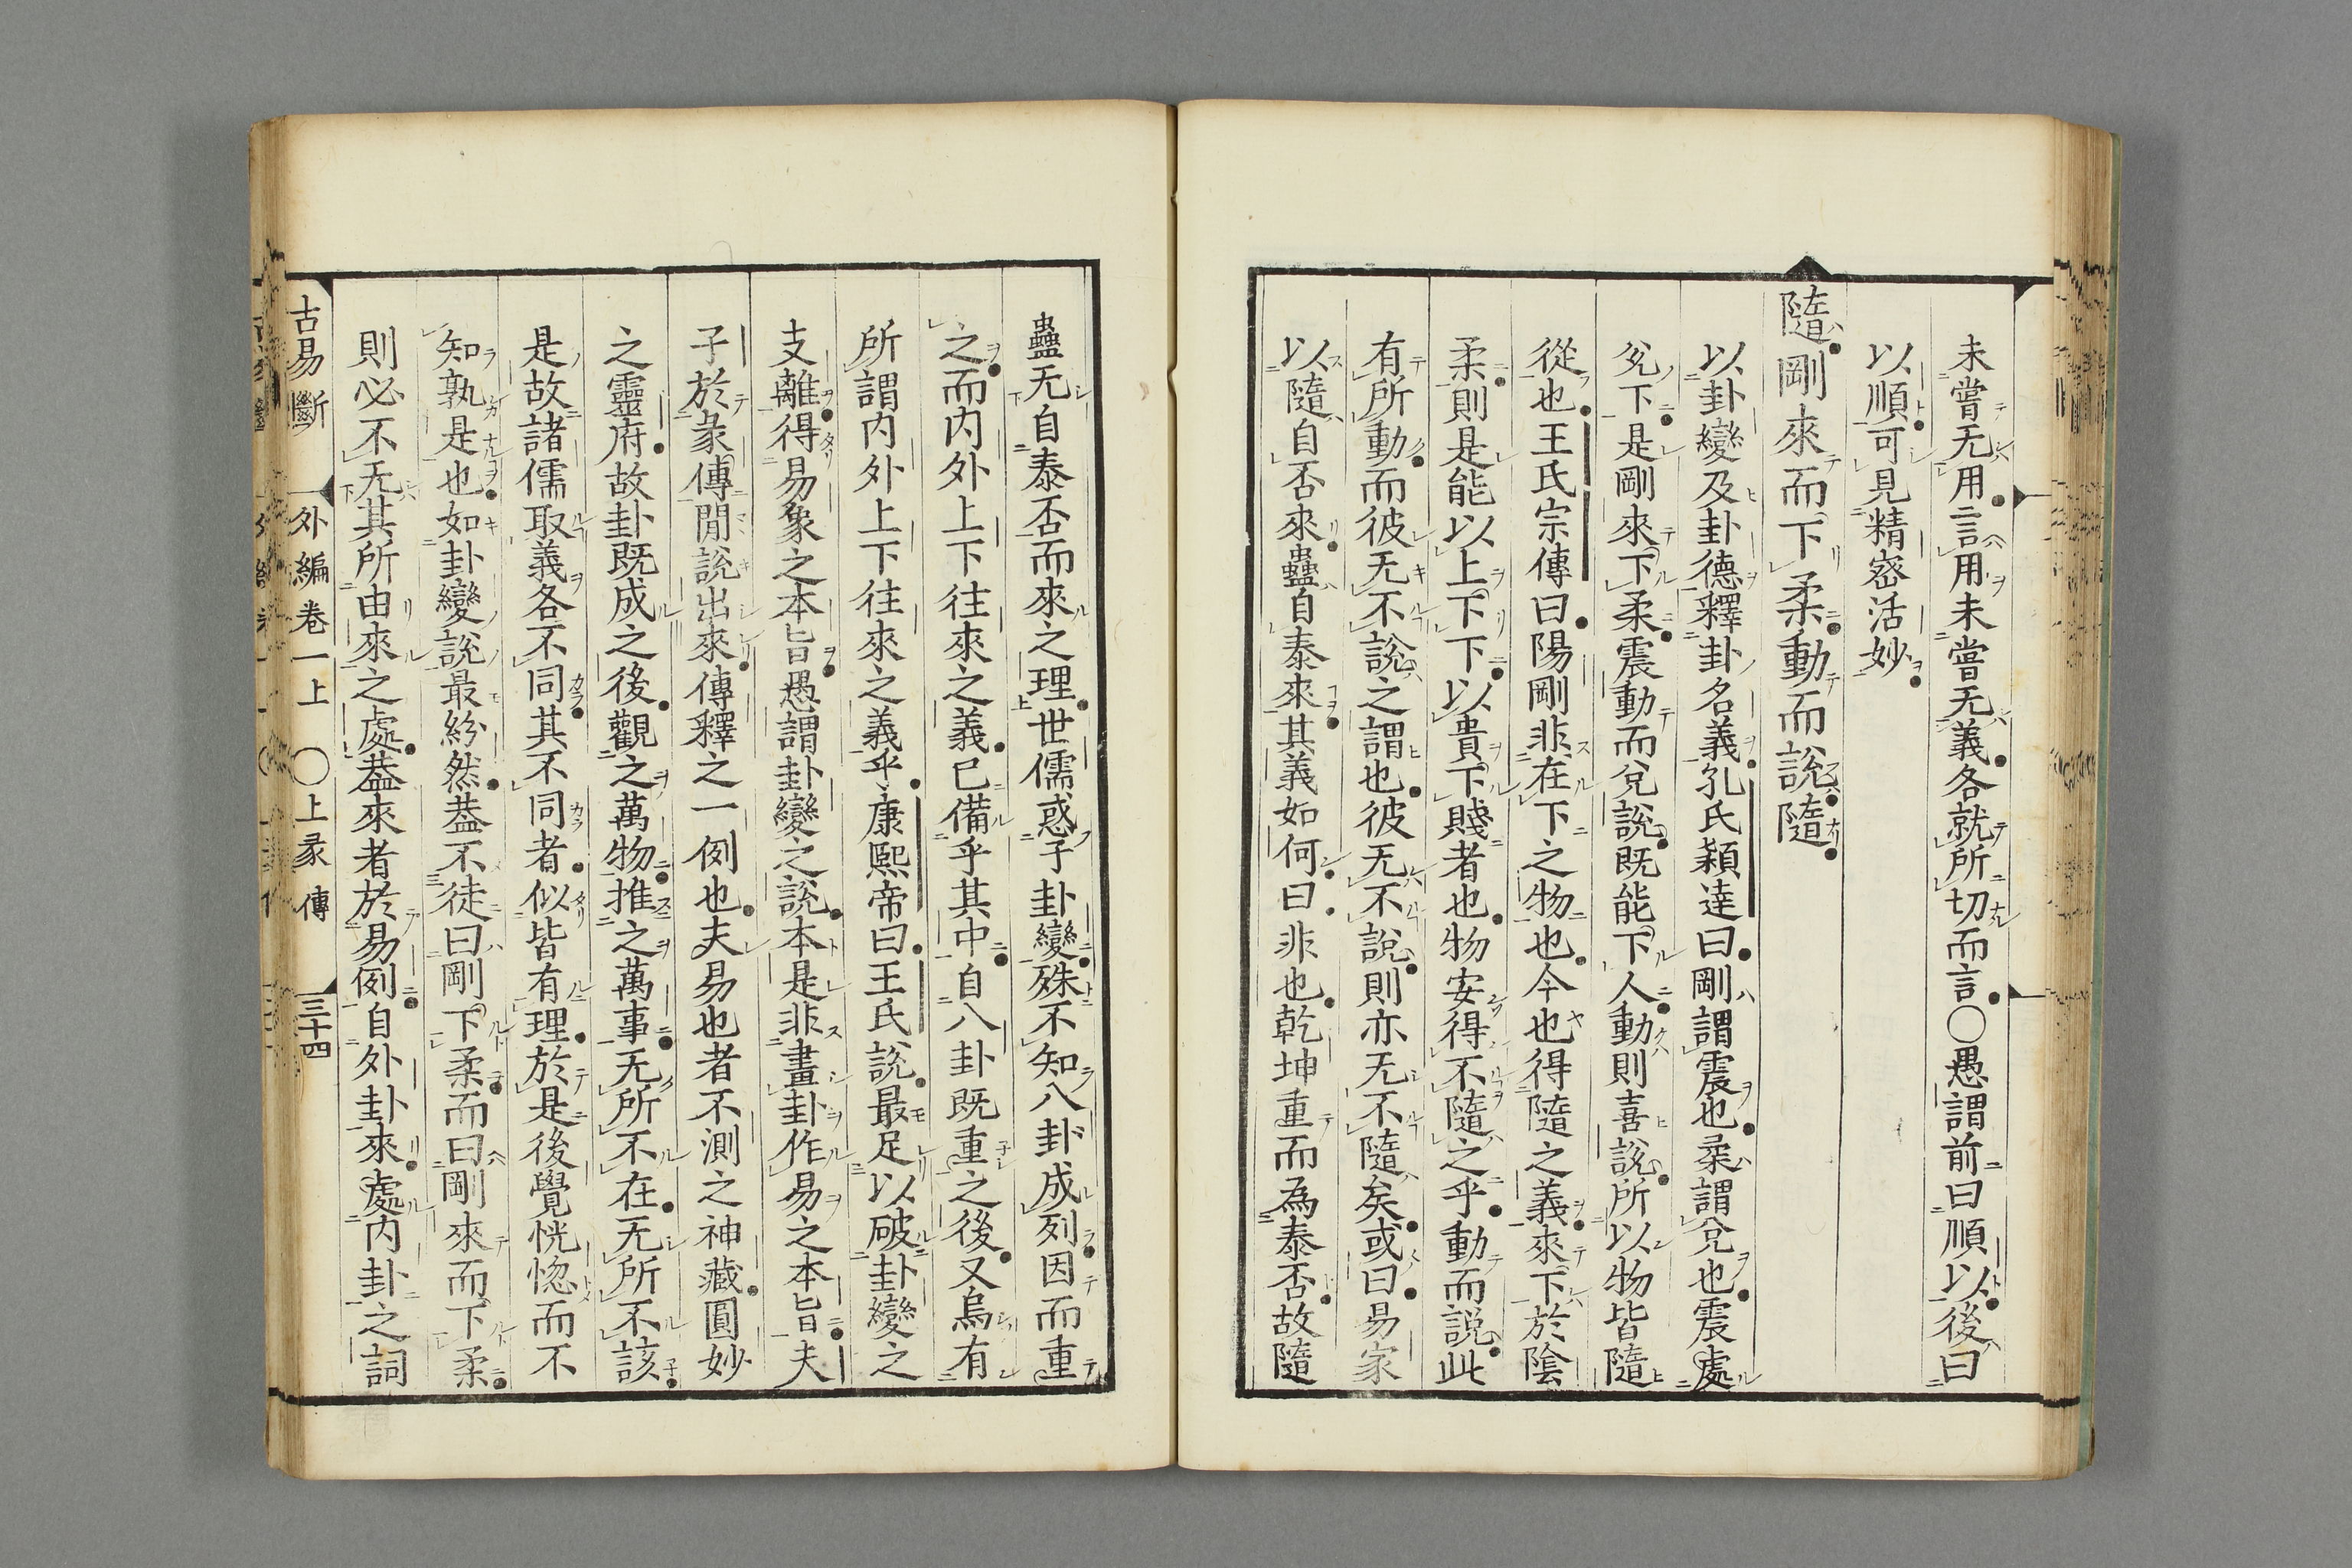 未嘗无用言用未嘗无義各就所切而言○愚謂前曰順以後曰
以順可見精密活妙
隨剛來而下柔動而說隨
以卦變及卦德釋卦名義孔氏穎達曰剛謂震也柔謂兌也震處
兌下是剛來下柔震動而兌說既能下人動則喜說所以物皆隨
從也王氏宗傳曰陽剛非在下之物也今也得隨之義來下於陰
柔則是能以上下下以貴下賤者也物安得不隨之乎動而說此
有所動而彼无不說之謂也彼无不說則亦无不隨矣或曰易家
以隨自否來蠱自泰來其義如何曰非也乾坤重而為泰否故隨
蠱无自泰否而來之理世儒惑于卦變殊不知八卦成列因而重
之而內外上下往來之義已備乎其中自八卦既重之後又烏有
所謂內外上下往來之義乎康熙帝曰王氏說最足以破卦變之
支離得易象之本旨愚謂卦變之說本是非畫卦作易之本旨夫
子於彖傳間說出來傳釋之一例也夫易也者不測之神藏圓妙
之靈府故卦既成之後觀之萬物推之萬事无所不在无所不該
是故諸儒取義各不同其不同者似皆有理於是後覺恍惚而不
知孰是也如卦變說最紛然葢不徒曰剛下柔而曰剛來而下柔
則必不无其所由來之處葢來者於易例自外卦來處內卦之詞
古易斷 外編卷一上 ○上彖傳 三十四